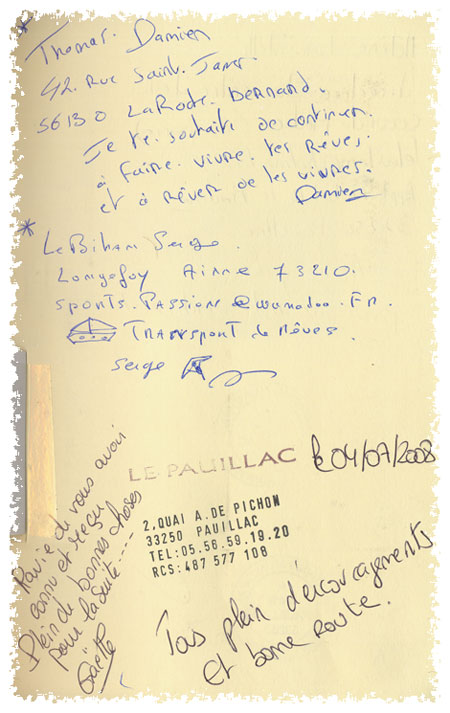 * Thomas. Damien
42. Rue Saint. James.
56130 LaRoche. Bernard.
Je te. souhaite de continuer.
à faire. vivre. tes Rêves.
et à Rêver de les vivres.
Damien
* LeBihan Serge.
Longefoy Aime 73210.
sports.Passion@wanadoo.FR.
Transport de Rêves.
Serge
LE PAUILLAC le 04/07/2008
2,QUAI A.DE PICHON
33250 PAUILLAC
TEL:05.56.59.19.20
RCS:487 577 108
Ravie de vous avoir
connu et reçu
Plein de bonnes choses
pour la suite----
Gaëlle
Tous plein d'écouragements
Et bonne route.